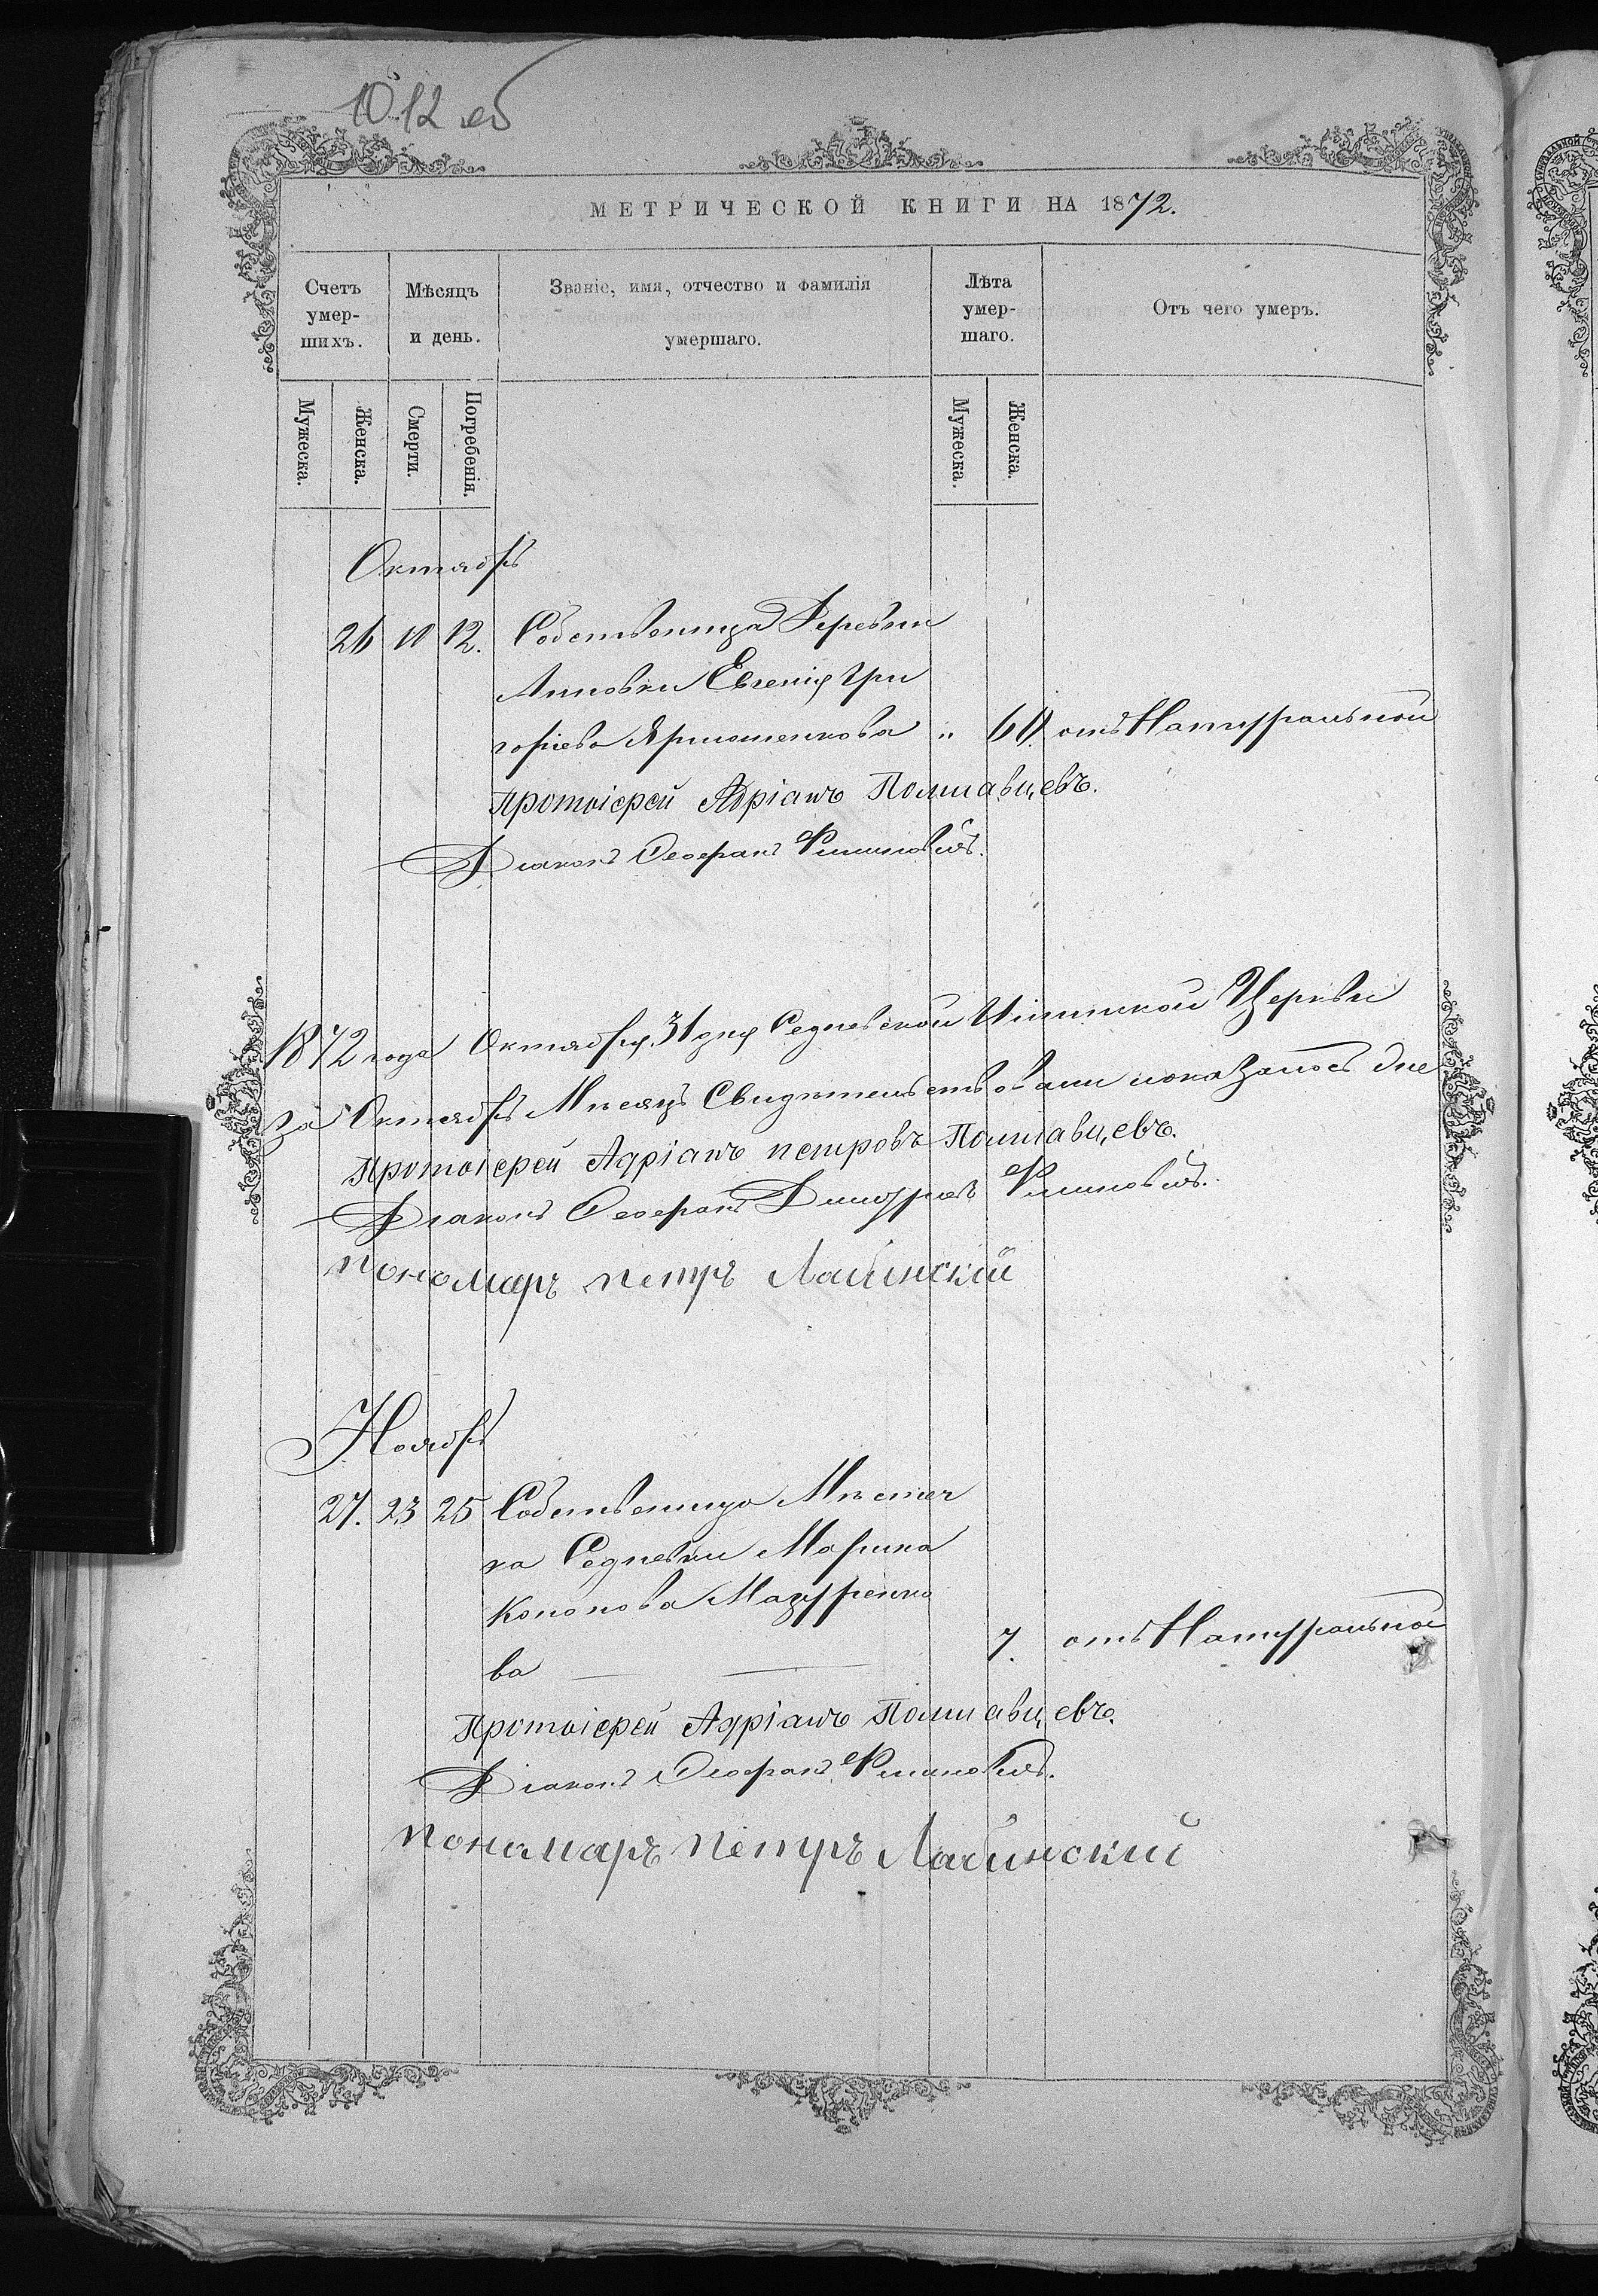 1012 об
МЕТРИЧЕСКОЙ КНИГИ НА 1872.
Счетъ умер- шихъ.
Мѣсяцъ и день.
Званіе, имя, отчество и фамилія умершаго.
Лѣта умер- шаго.
Отъ чего умеръ.
Мужеска.
Женска.
Смерти.
Погребенія.
Мужеска.
Женска.
Октябрь
26 10 12. Собственица Деревни
Евгенія Гри
горіева Ярмошенкова " 60. отъ Натуральной
Протоіерей Адріанъ Полтавцевъ.
Діаконъ Ѳеофанъ
1872 года Октября 31 дня Седневской Церкви
за Октябрь Мѣсяцъ Свидѣтельствовали
Протоіерей Адріанъ петровъ Полтавцевъ.
Діаконъ Ѳеофанъ Димитріевъ
пономарь петръ Лабинский
Ноябрь
27. 23 25 Собственица Мѣстеч
ка Седнева Марина
Кононова Мазуренко
ва 7. отъ Натуральной
Протоіерей Адріанъ Полтавцевъ.
Діаконъ Ѳеофанъ
пономарь петръ Лабинский